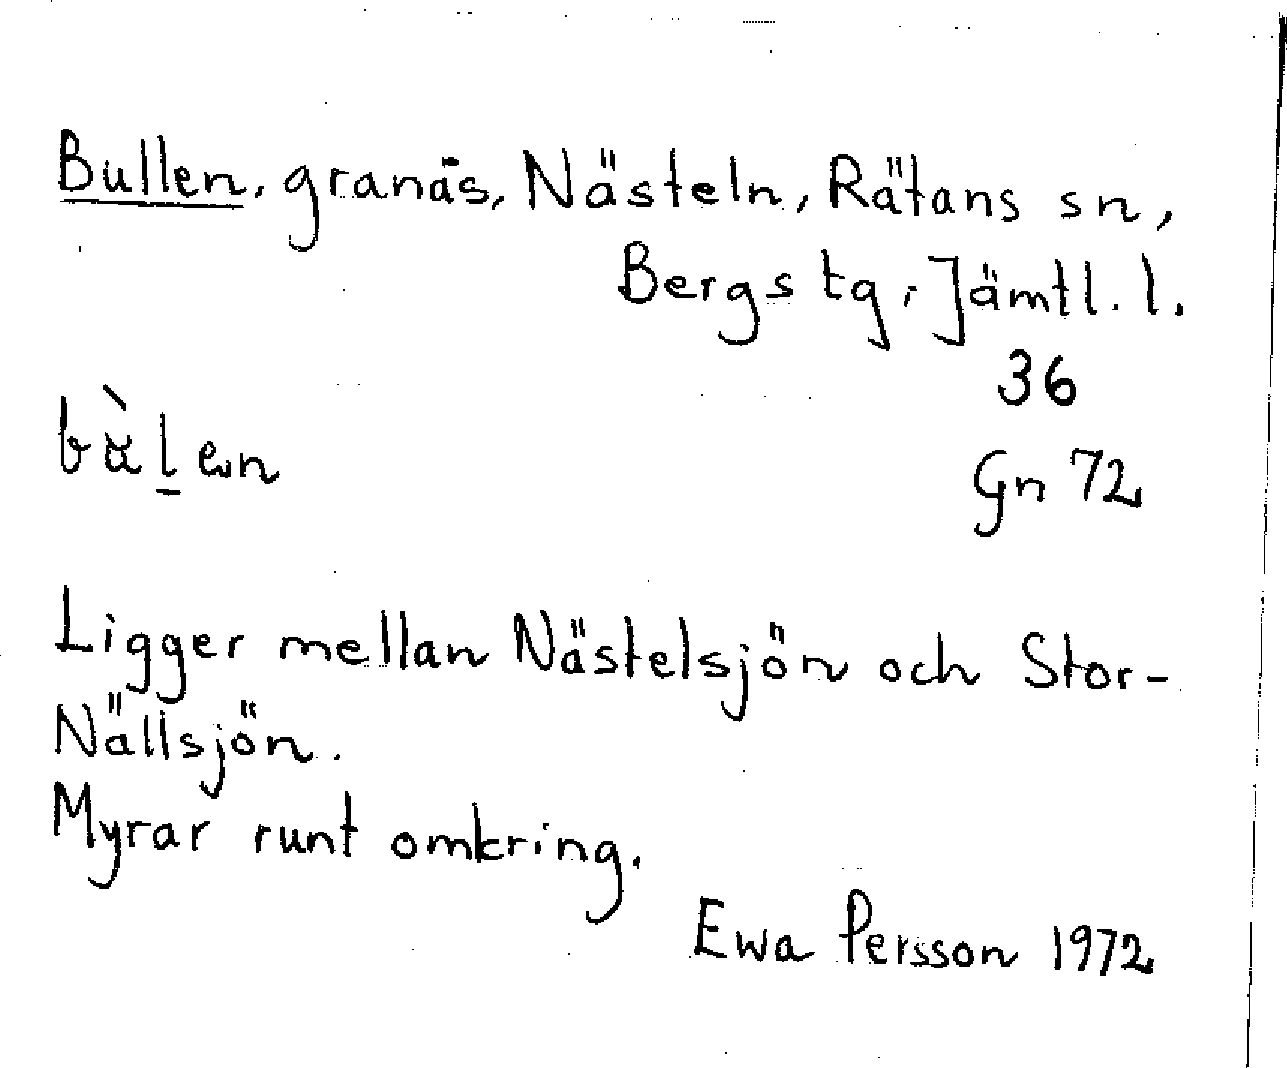 Bullen, granäs, Nästeln, Rätans sn,
Bergs tg, Jämtl. l.
36
Gn 72
Ligger mellan Nästelsjön och Stor-
Nällsjön.
Myrar runt omkring.
Ewa Persson 1972